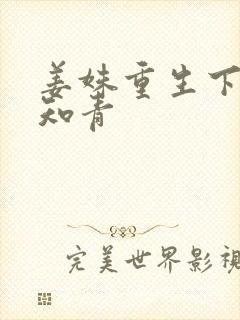 姜妹重生下
知青
完美世界影视